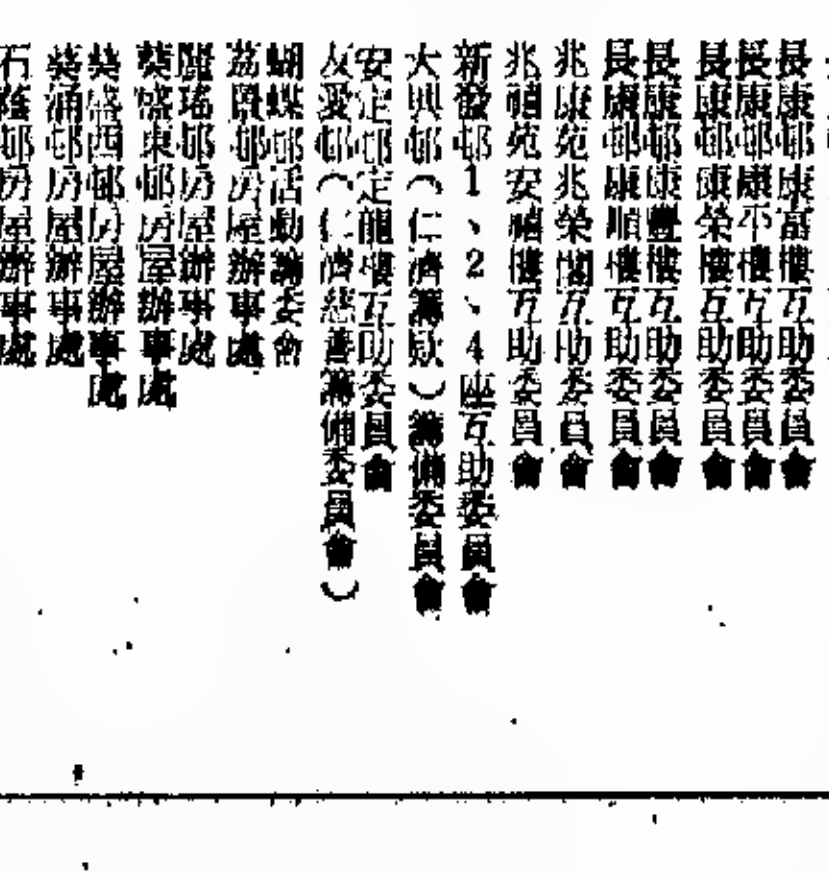 長康邨康富樓互助委員會
長康邨康平樓互助委員會
長康邨康榮樓互助委員會
長康邨康豐樓互助委員會
長康邨康順樓互助委員會
兆康苑兆榮閣互助委員會
兆禧苑安禧樓互助委員會
新發邨1、2、4座互助委員會
大興邨(仁濟籌欵)籌備委員會
安定邨定龍樓互助委員會
友愛邨(仁濟慈善籌備委員會)
蝴蝶邨活動籌委會
荔景邨房屋辦事處
麗瑤邨房屋辦事處
葵盛東邨房屋辦事處
葵盛西邨房屋辦事處
葵涌邨房屋辦事處
石蔭邨房屋辦事處